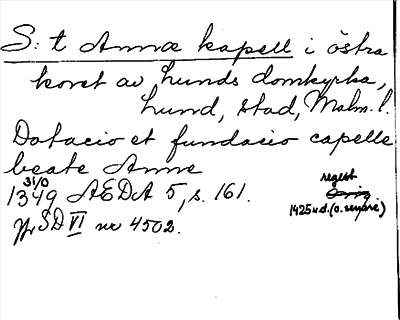 S:t Annæ kapell i östra
koret av Lunds domkyrka,
Lund, stad, Malm. l.
Dotacio et fundacio capelle
beate Anne
31/0
1349 AEDA 5, s. 161.
regest
1425 u.d. (o. senare)
Jfr SD VI nr 4502.